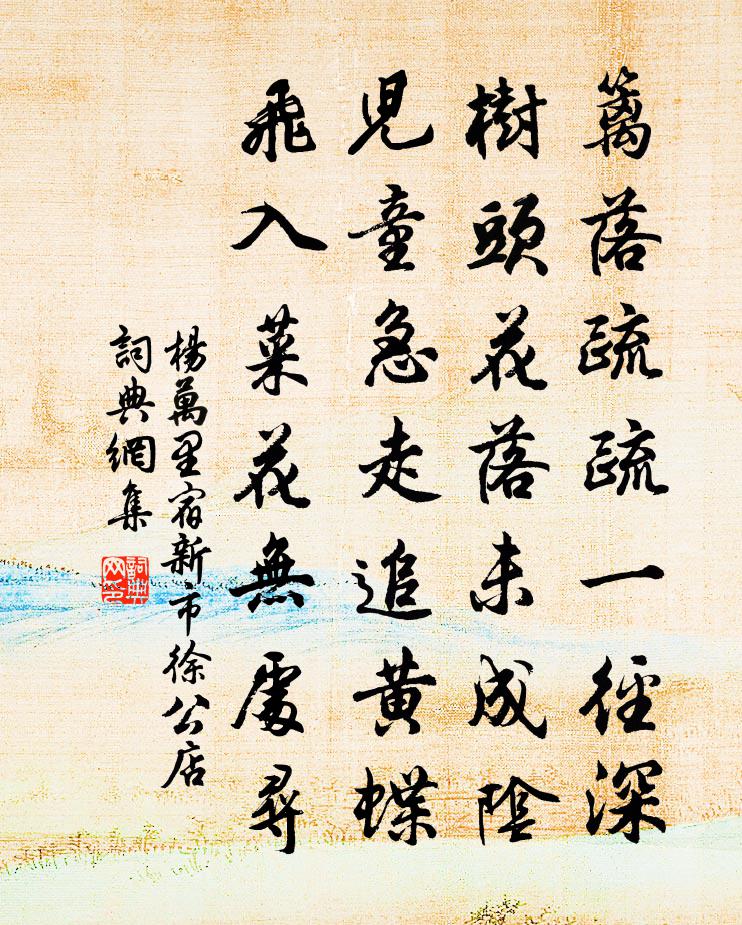 籬落疏疏一徑深
樹頭花落未成陰
兒童急走追黃蝶
飛入菜花無處尋
楊萬里宿新市徐公店
詞典網集
詞典网印